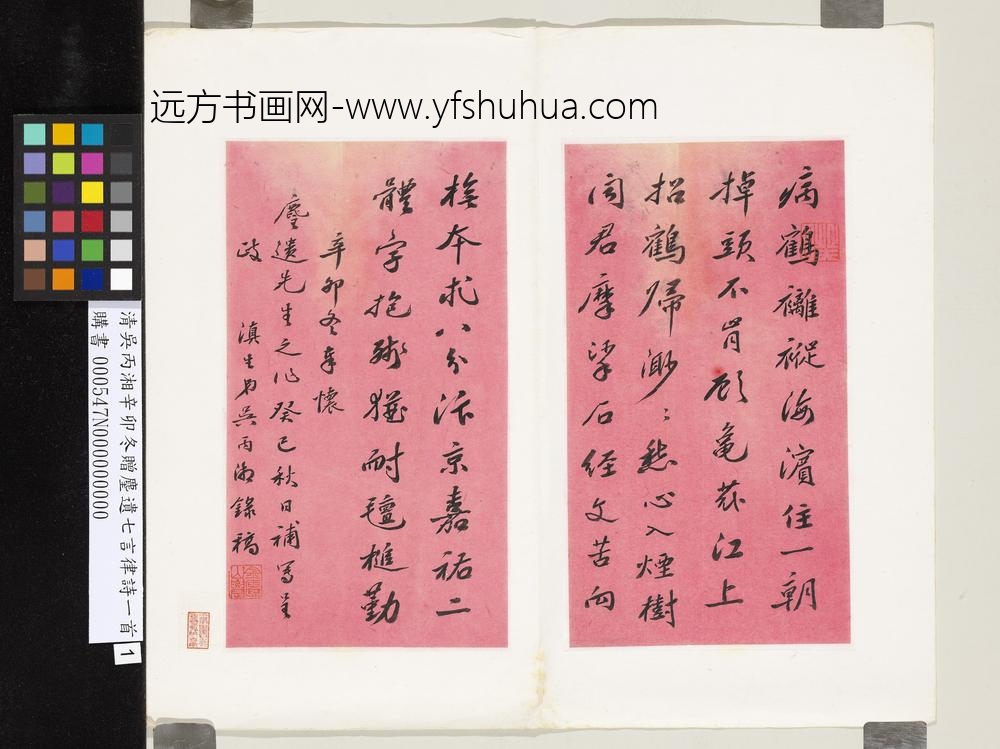 远方书画网-www.yfshuhua.com
病鶴離褷海濱住一朝
掉頭不肯顧亀茲江上
招鶴歸渺〻愁心入煙樹
閔君摩挲石經文苦向
搨本求八分汴京嘉祐二
體字抱殘猶耐氊椎勤
辛卯冬奉懷
塵遺先生之作癸巳秋日補寫呈
政 滇生弟吳丙湘錄稿
清吳丙湘辛卯冬贈塵遺七言律詩一首
購書 000547N000000000
1